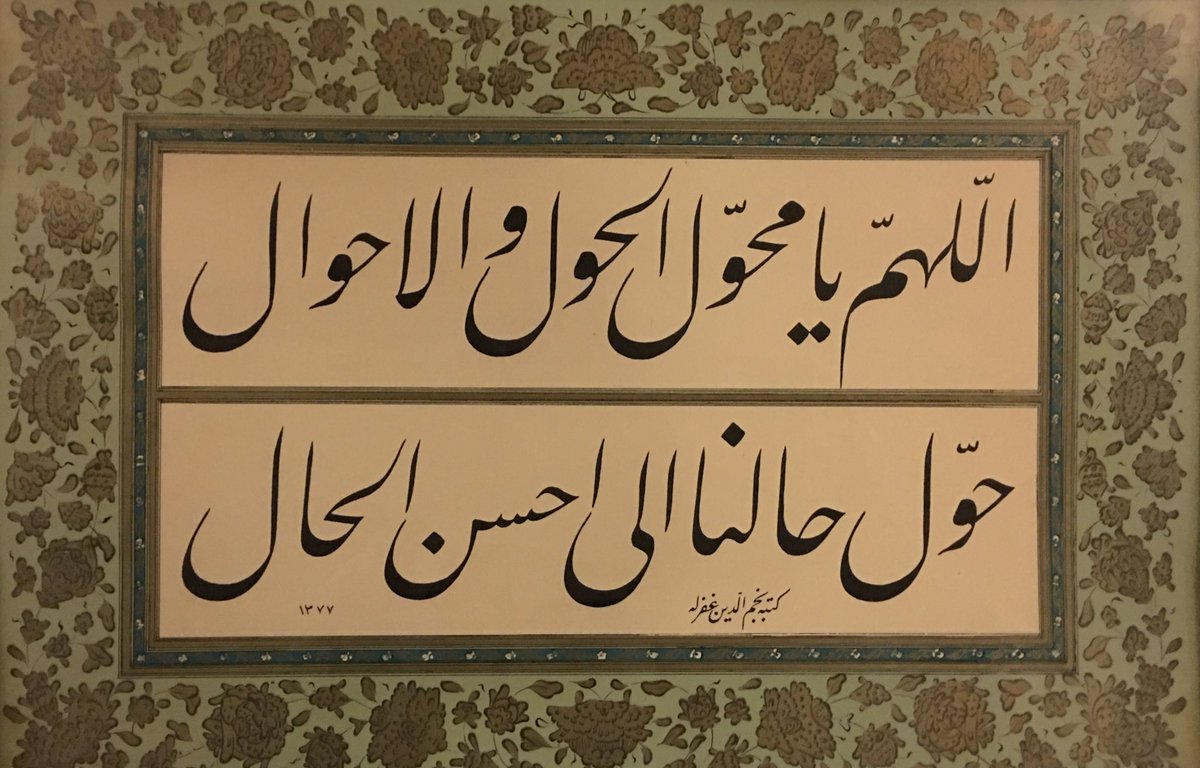 اللّهمّ یا محوّل الحول و الاحوال
حوّل حالنا الی احسن الحال
کتبه نجم الدّین غفرله
۱۳۷۷